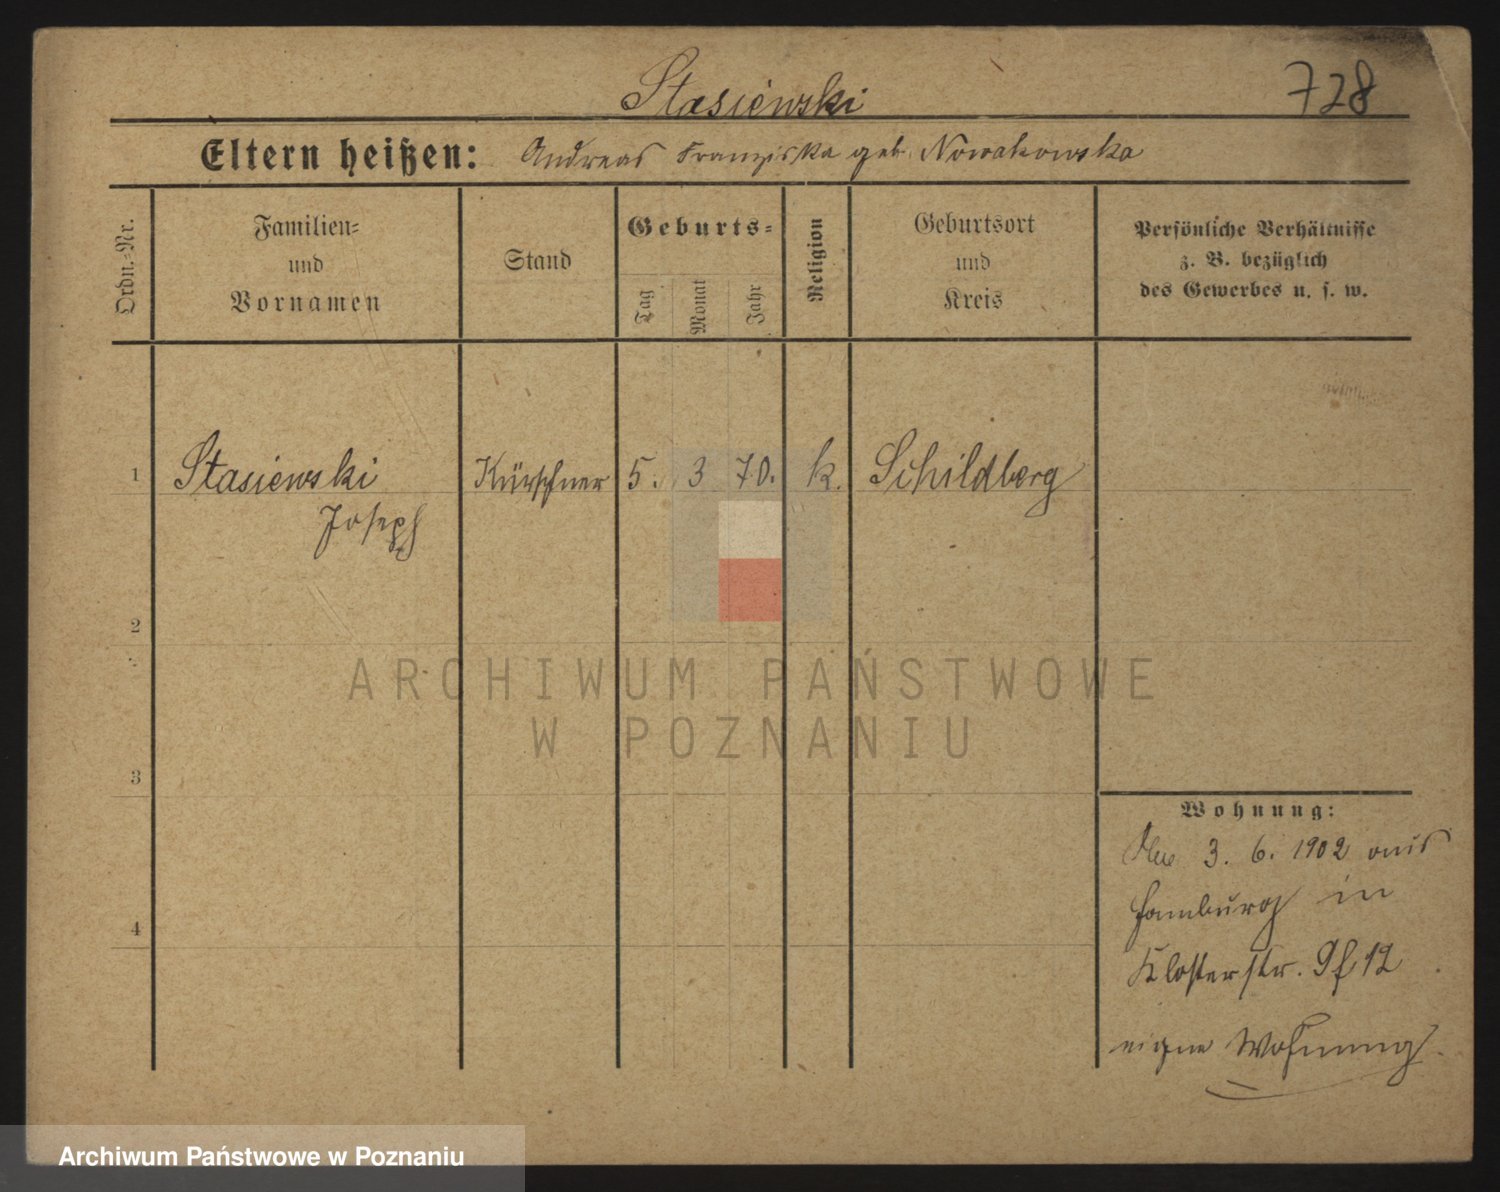 728
Stasiewski
Eltern heißen: Andreas Franziska geb. Nowakowska
Ordn.-Nr.
Familien-
und
Vornamen
Stand
Geburts-
Tag
Monat
Jahr
Religion
Geburtsort
und
Kreis
Persönliche Verhältnisse
z. B. bezüglich
des Gewerbes u. s. w.
1 Stasiewski Kürschner 5. 3 70. k. Schildberg
Joseph
2
3
4
Wohnung:
3. 6. 1902 aus
Hamburg in
Klosterstr. 12
eigne Wohnung.
ARCHIWUM PAŃSTWOWE
W POZNANIU
Archiwum Państwowe w Poznaniu